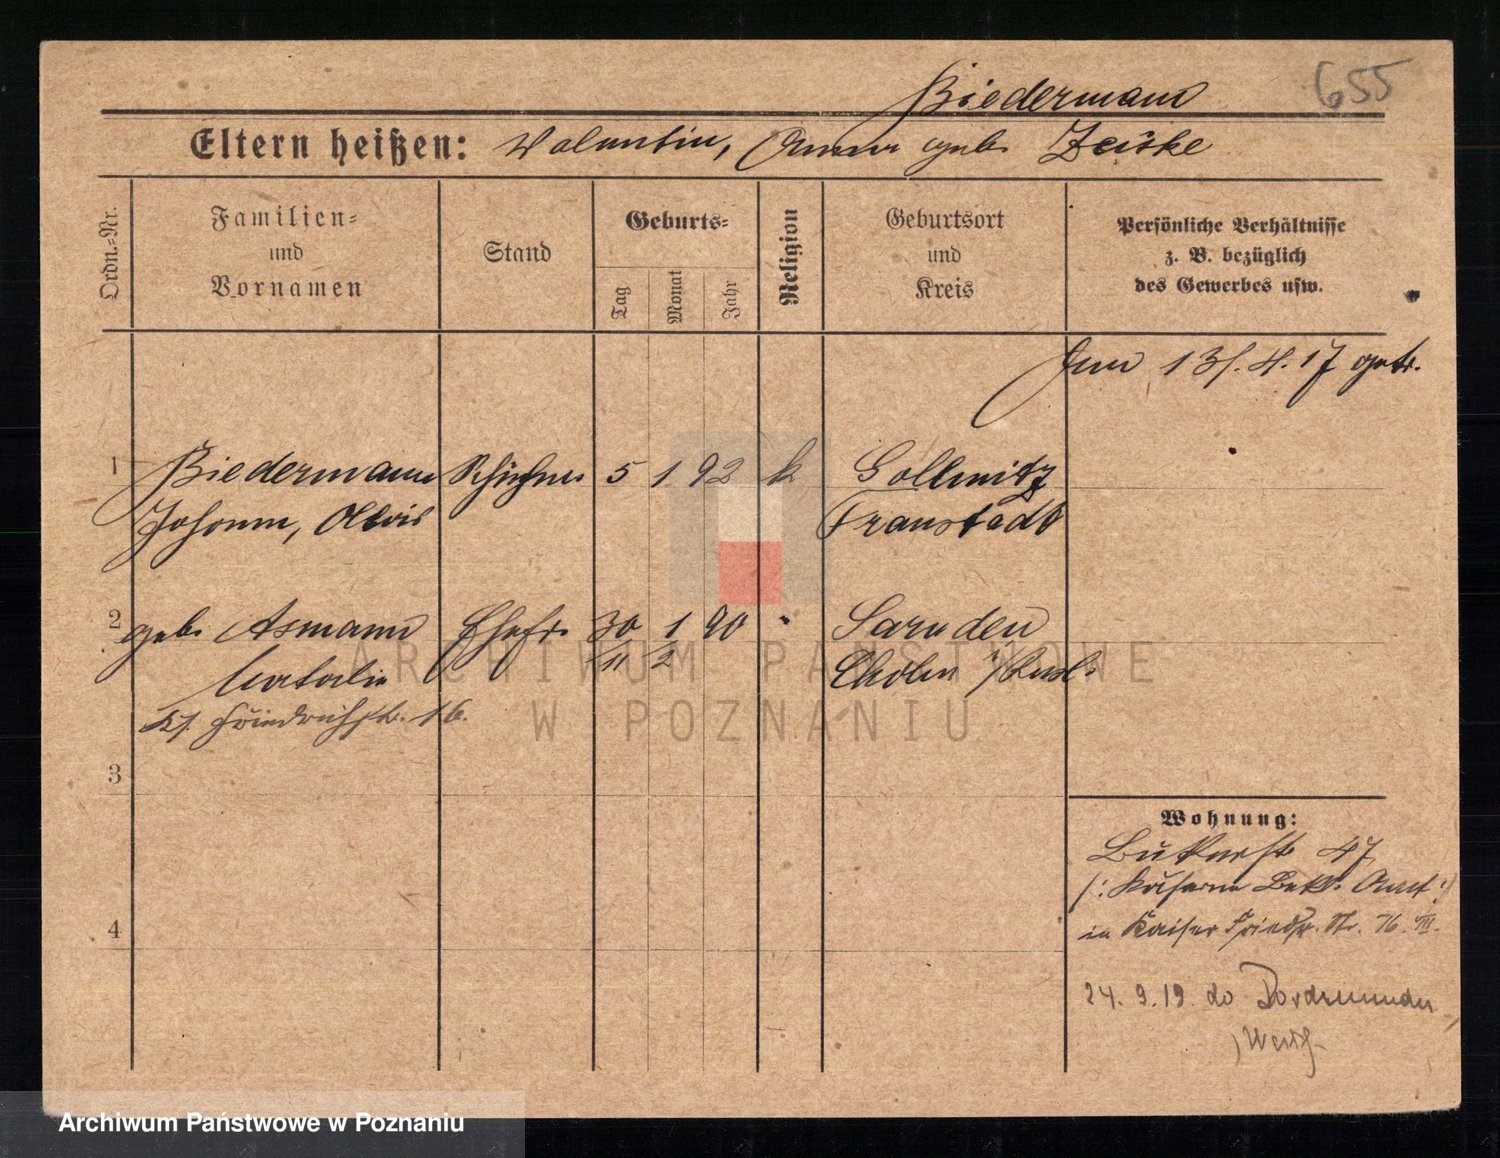 655
Biedermann
Eltern heißen: Valentin, Anna geb. Zeiske
Ordn.=Nr.
Familien=
und
Vornamen
Stand
Geburts=
Tag
Monat
Jahr
Religion
Geburtsort
und
Kreis
Persönliche Verhältnisse
z. B. bezüglich
des Gewerbes usw.
13/.4.17 getr.
1 Biedermann 5 1 92 k Gollmitz
Johann, Alois Fraustadt
2 geb. Asmann Ehefr. 30 1 90 "
11 2
Natalie Cholm
Friedrichstr. 16.
3
4
Wohnung:
Bukerstr 47
in Kaiser Friedr. Str. 76. III.
24. 9. 19. do
Westf.
ARCHIWUM PAŃSTWOWE
W POZNANIU
Archiwum Państwowe w Poznaniu